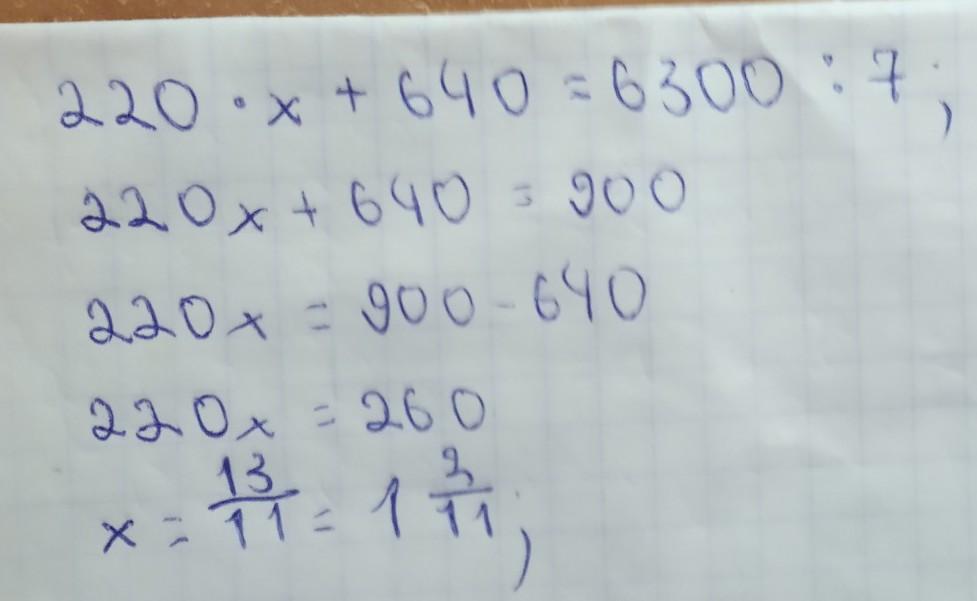 220 · x + 640 = 6300 : 7 ;
220x + 640 = 900
220x = 900 - 640
220x = 260
x = 13/11 = 1 2/11 ;